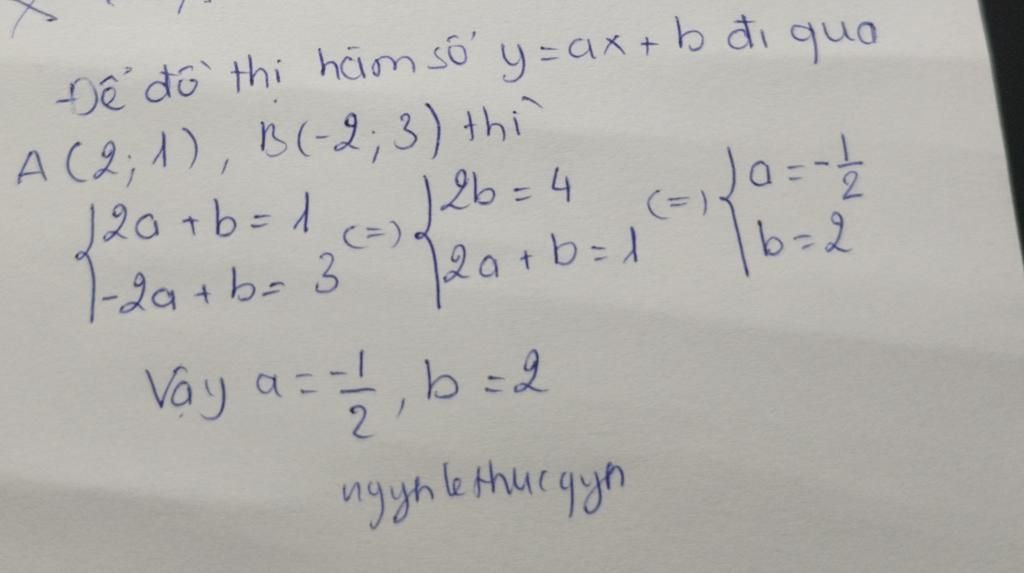 -Để đồ thị hàm số y = ax + b đi qua
A (2; 1), B(-2; 3) thì
{2a + b = 1 (=) {2b = 4 (=) {a = -1/2
{-2a + b = 3 {2a + b = 1 {b = 2
Vậy a = -1/2, b = 2
ngynlethucqyn